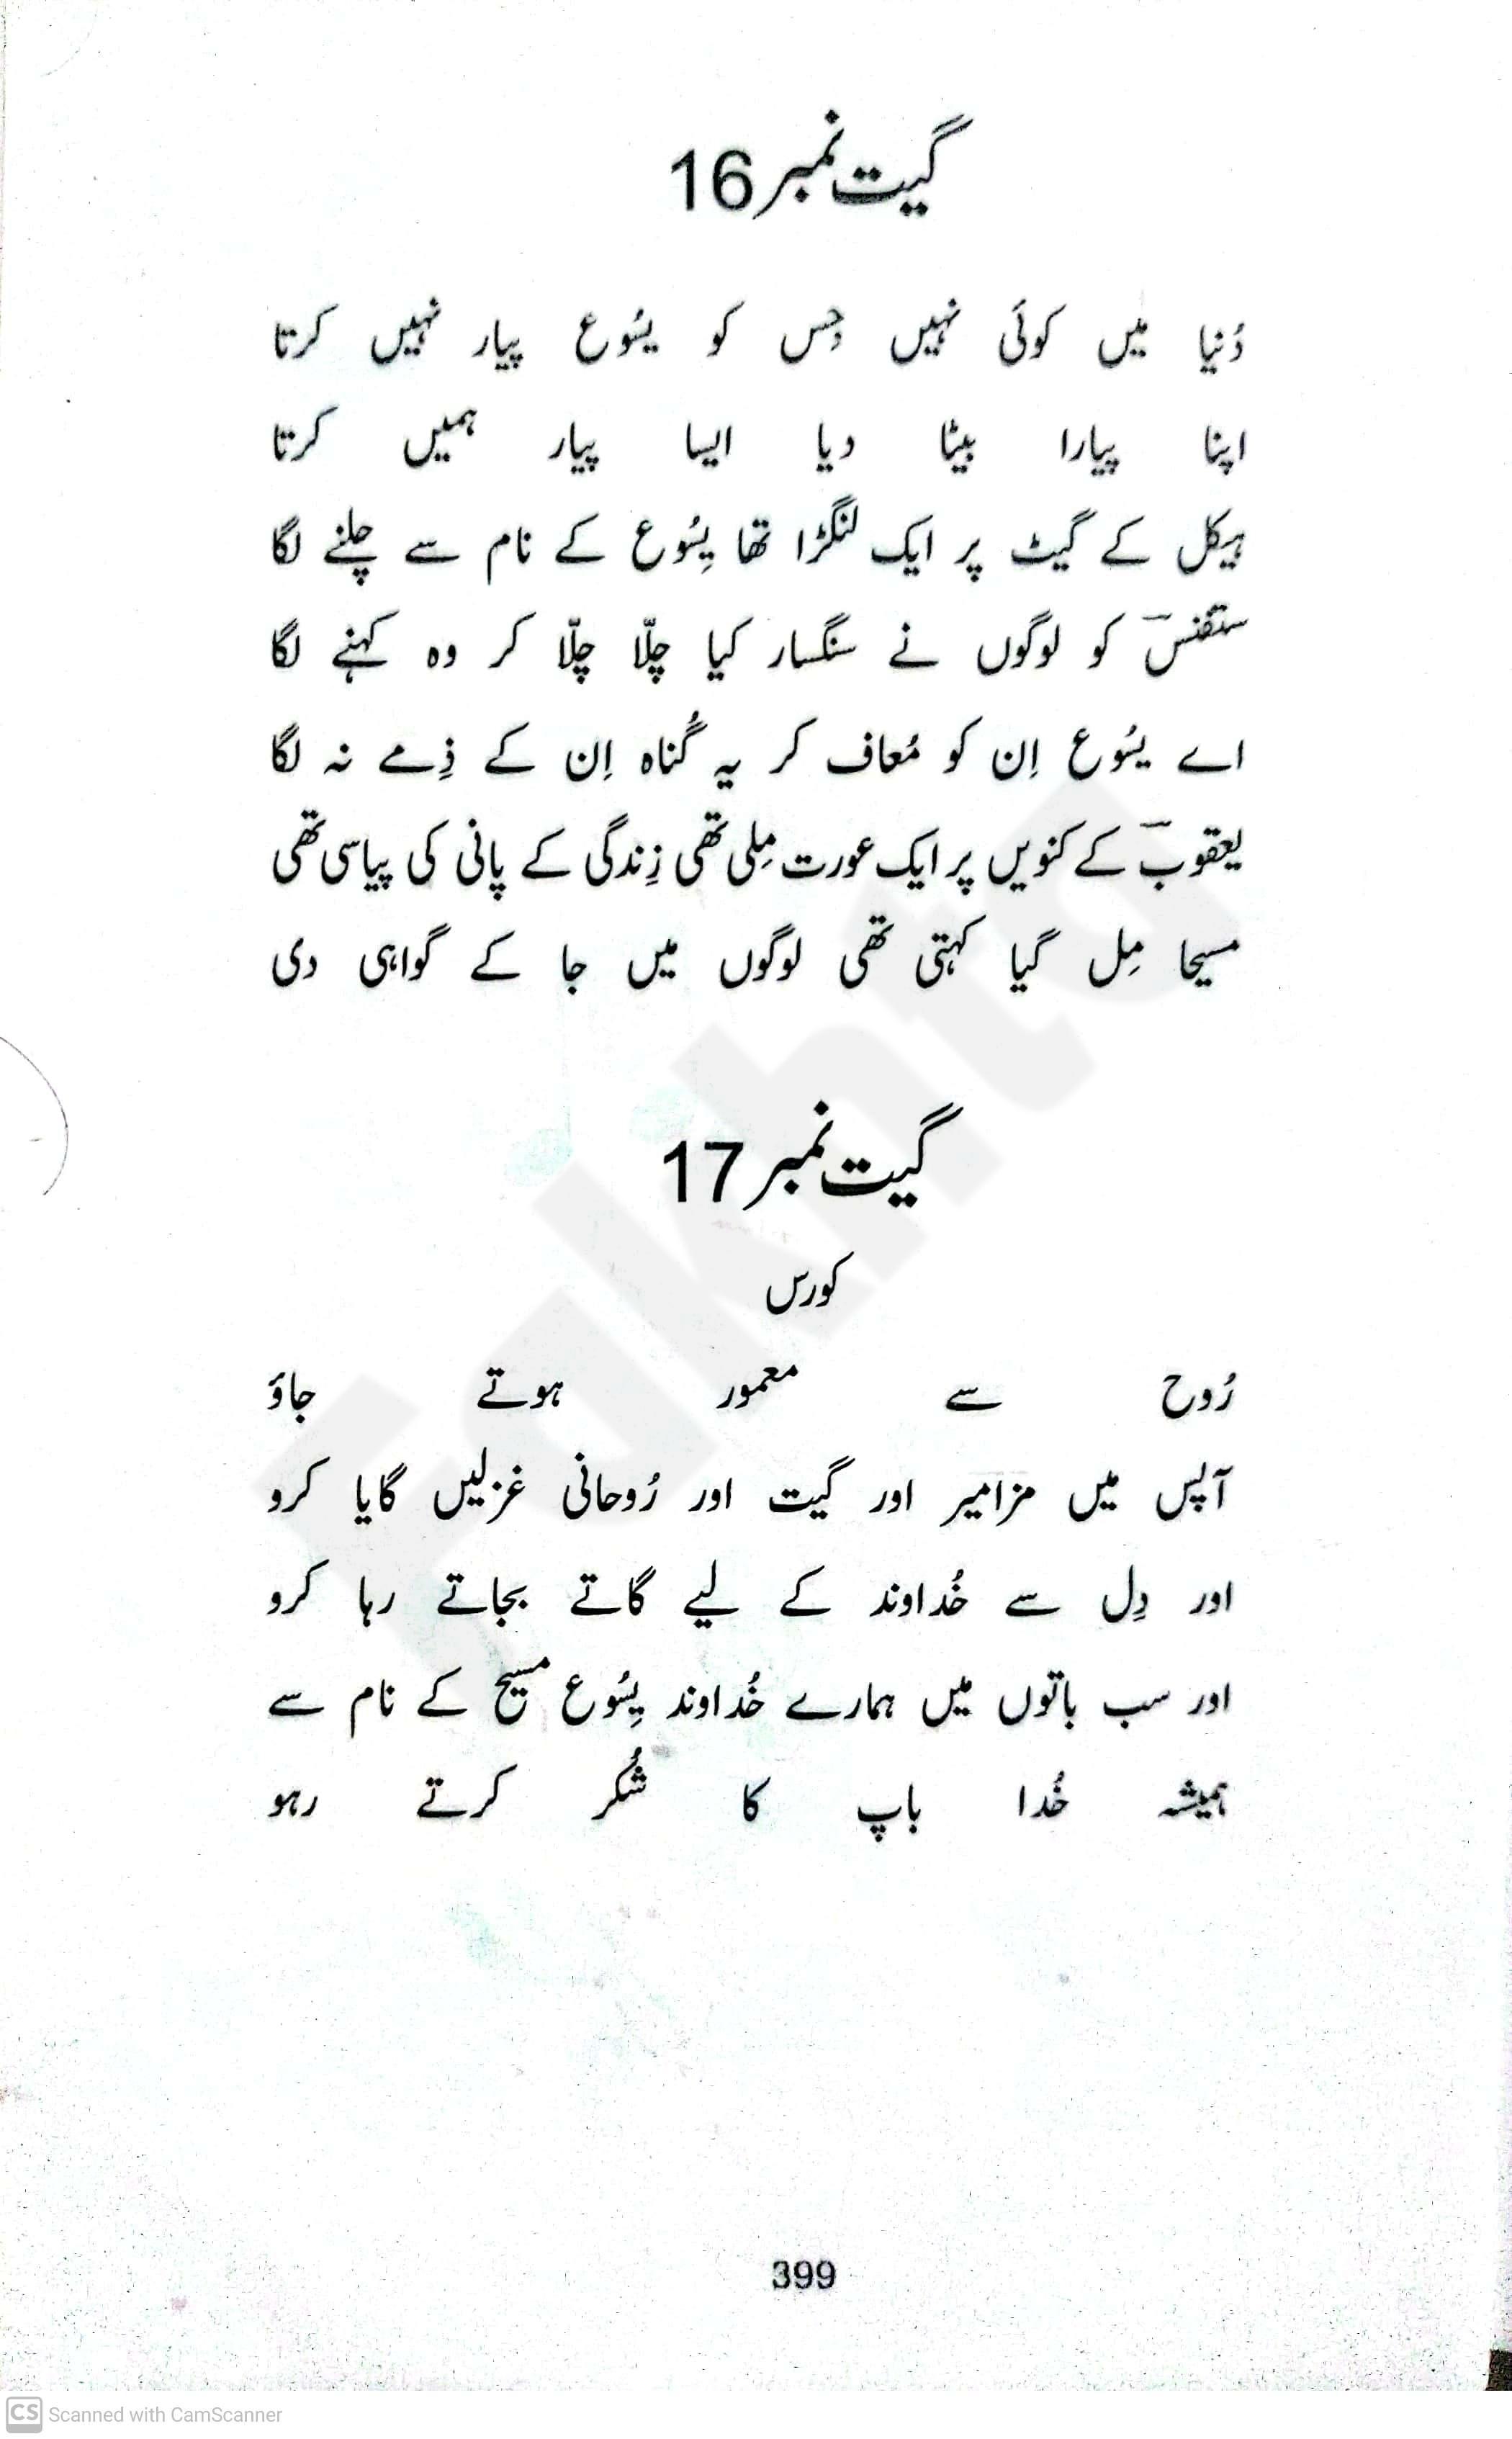 گیت نمبر 16
دُنیا میں کوئی نہیں جِس کو یسُوع پیار نہیں کرتا
اپنا پیارا بیٹا دیا ایسا پیار ہمیں کرتا
ہیکل کے گیٹ پر ایک لنگڑا تھا یِسُوع کے نام سے چلنے لگا
ستفنس کو لوگوں نے سنگسار کیا چلّا چلّا کر وہ کہنے لگا
اے یسُوع اِن کو مُعاف کر یہ گُناہ اِن کے ذِمے نہ لگا
یعقوب کے کنویں پر ایک عورت مِلی تھی زِندگی کے پانی کی پیاسی تھی
مسیحا مِل گیا کہتی تھی لوگوں میں جا کے گواہی دی
گیت نمبر 17
کورس
رُوح سے معمور ہوتے جاؤ
آپس میں مزامیر اور گیت اور رُوحانی غزلیں گایا کرو
اور دِل سے خُداوند کے لیے گاتے بجاتے رہا کرو
اور سب باتوں میں ہمارے خُداوند یِسُوع مسیح کے نام سے
ہمیشہ خُدا باپ کا شُکر کرتے رہو
Fakhta
399
CS Scanned with CamScanner